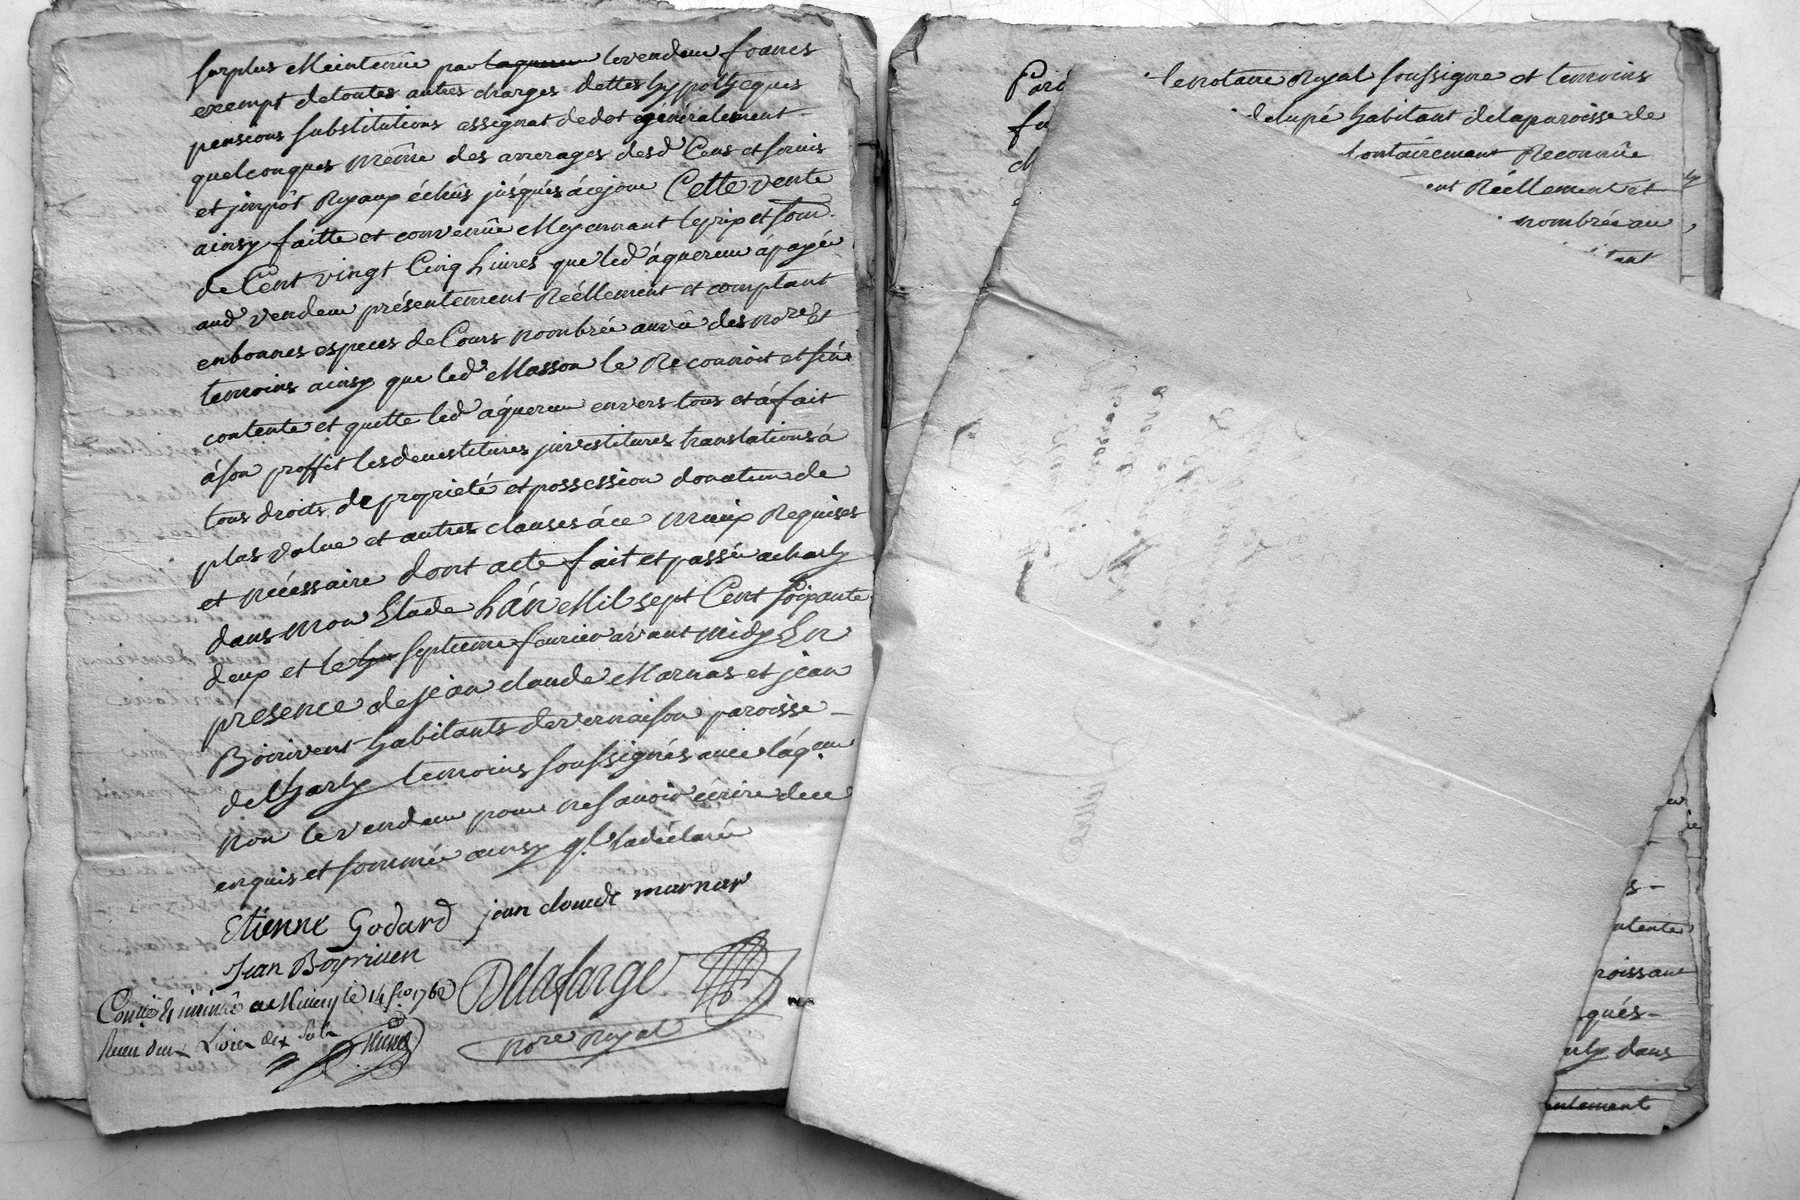 surplus et maintenüe par laquereur le vendeur francs
exempt de toutes autres charges dettes hypotheques
pensions substitutions assignat de dot et généralement
quelconques même des arrerages desd Cens et servis
et jmpôt Royaux échûs jusques á ce jour Cette vente
ainsy faitte et convenüe Moyennant le prix et som.
de Cent vingt Cinq Livres que led áquereur á payée
aud vendeur présentement Réellement et comptant
en bonnes especes de Cours nombrée au vû des nore et
temoins ainsy que led Masson le Reconnoit et s'en
contente et quitte led áquereur envers tous et á fait
á son proffit les devestitures jnvestitures translations á
tous droits de proprieté et possession donation de
plus value et autres clauses á ce mieux Requises
et nécessaire dont acte fait et passée a charly
dans mon Etude L'án Mil sept Cent soixante
deux et le septieme fevrier avant midy En
presence de jean claude Marnas et jean
Boirivent habitants de vernaison paroisse
de Charly temoins soussignés avec l'áq.eur
non le vendeur pour ne savoir écrire de ce
enquis et sommée ainsy q'l la déclaré
Etienne Godard jean claude marnas
Jean Boyriven
Delafarge
nore Royal
le 14 fro 1762
Livres dix sols
le notaire Royal soussigné et temoins
habitant de la paroisse de
volontairement Reconnûe
Réellement et
nombrée au
contente
dans